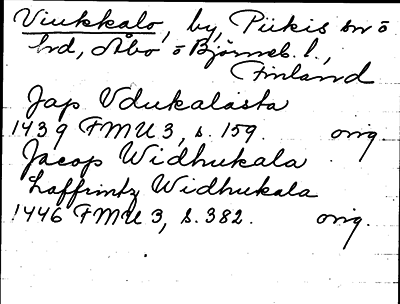 Viukkalo, by, Piikis sn o
hd, Åbo o Björneb. l.,
Finland
Jap Vdukalasta
1439 FMU 3, s. 159. orig.
Jacop Widhukala
Laffrintz Widhukala
1446 FMU 3, s. 382. orig.